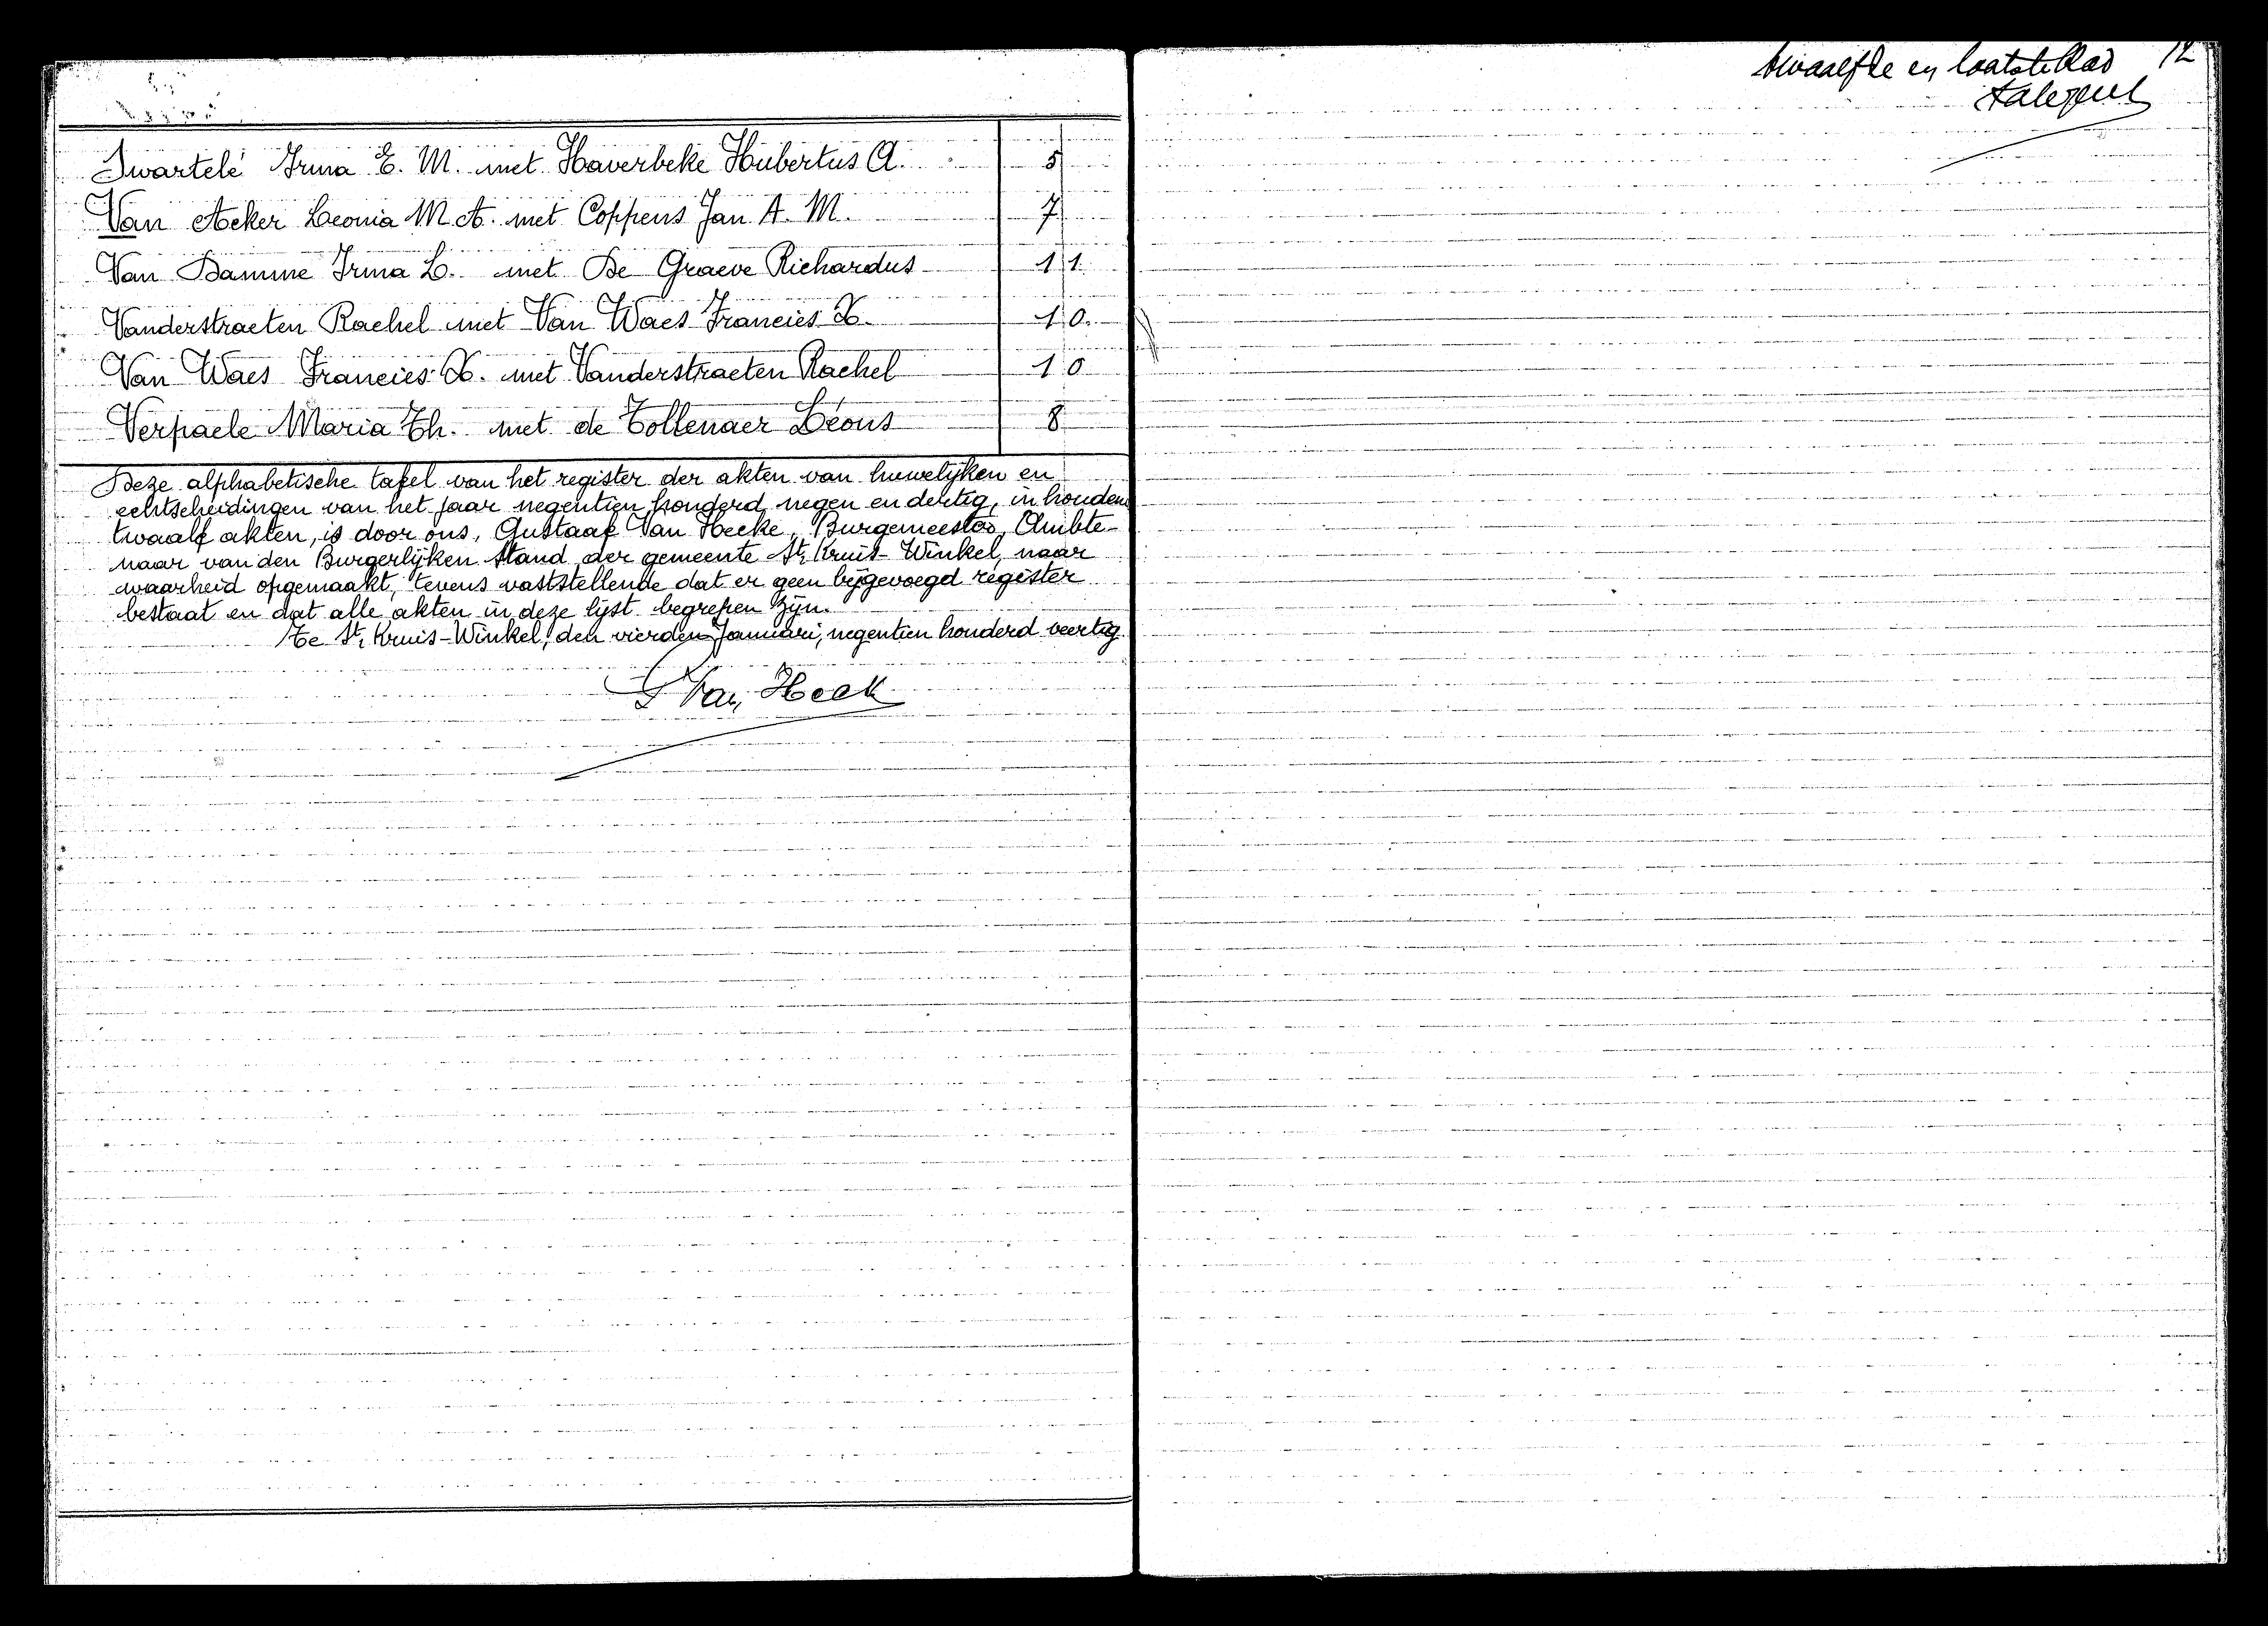 Swartelé Irma E. M. met Haverbeke Hubertus A. 5
Van Acker Leonia M. A. met Coppens Jan A. M. 7
Van Damme Irma L. met De Graeve Richardus 11
Vanderstraeten Rachel met Van Waes Francies X. 10
Van Waes Francies X. met Vanderstraeten Rachel 10
Verpaele Maria Th. met de Tollenaer Léons 8
Deze alphabetische tafel van het register der akten van huwelijken en
echtscheidingen van het jaar negentien honderd negen en dertig, in houdend
twaalf akten, is door ons, Gustaaf Van Hecke, Burgemeester, Ambte-
naar van den Burgerlijken Stand der gemeente St. Kruis-Winkel, naar
waarheid opgemaakt, tevens vaststellende dat er geen bijgevoegd register
bestaat en dat alle akten in deze lijst begrepen zijn.
Te St. Kruis-Winkel, den vierden Januari, negentien honderd veertig.
G Van Heck
twaalfde en laatste blad 12